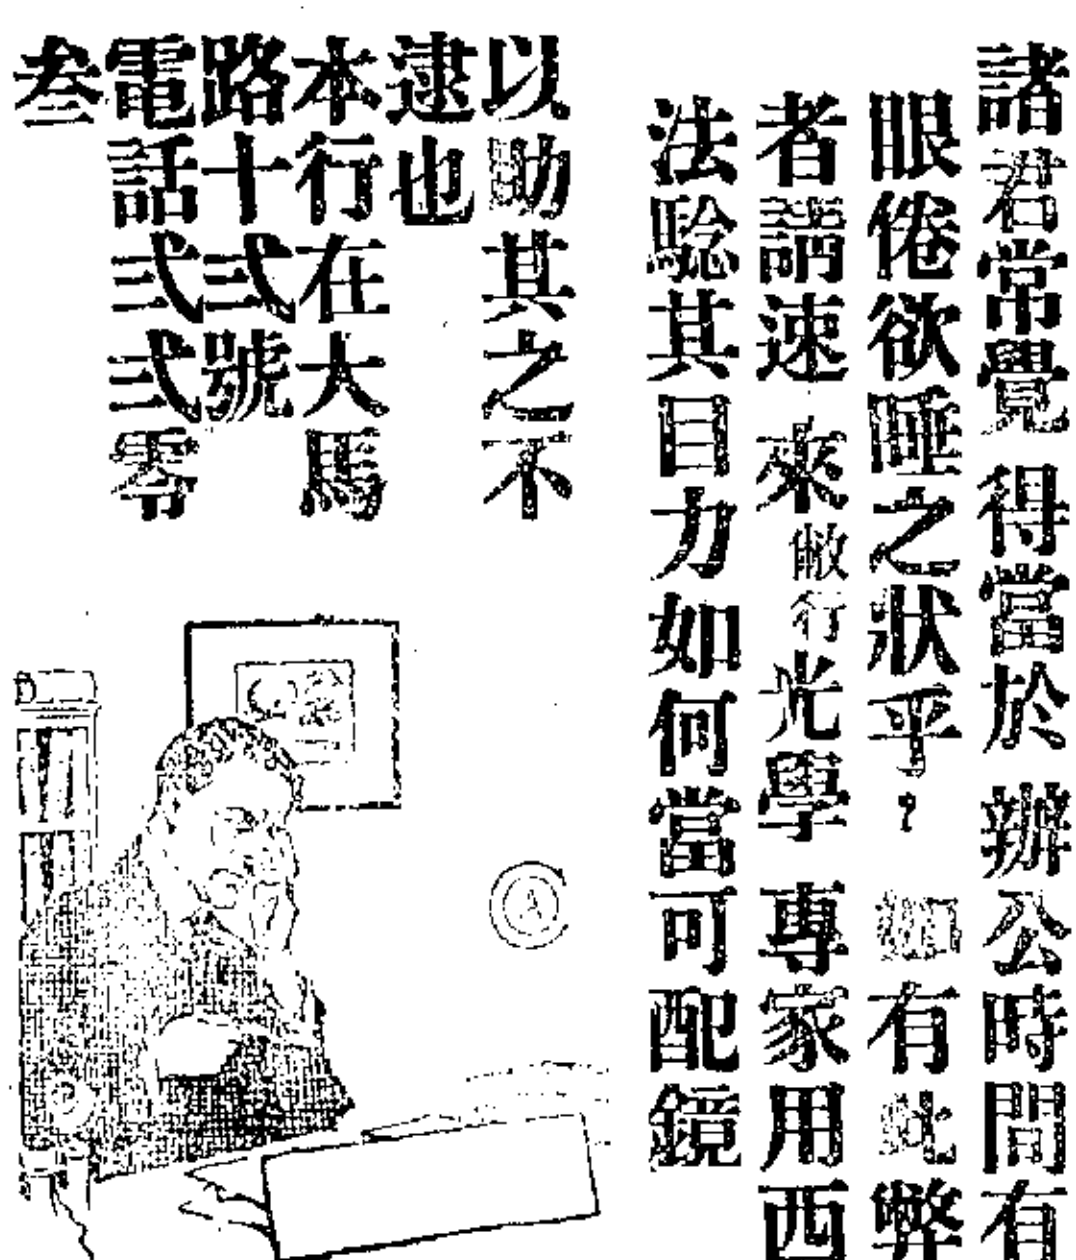 諸君常覺得當於辦公時間有
眼倦欲睡之狀乎?如有此弊
者請速來敝行光學專家用西
法騐其目力如何當可配鏡
以助其之不
逮也
本行在大馬
路十弍號
電話弍弍零
叁